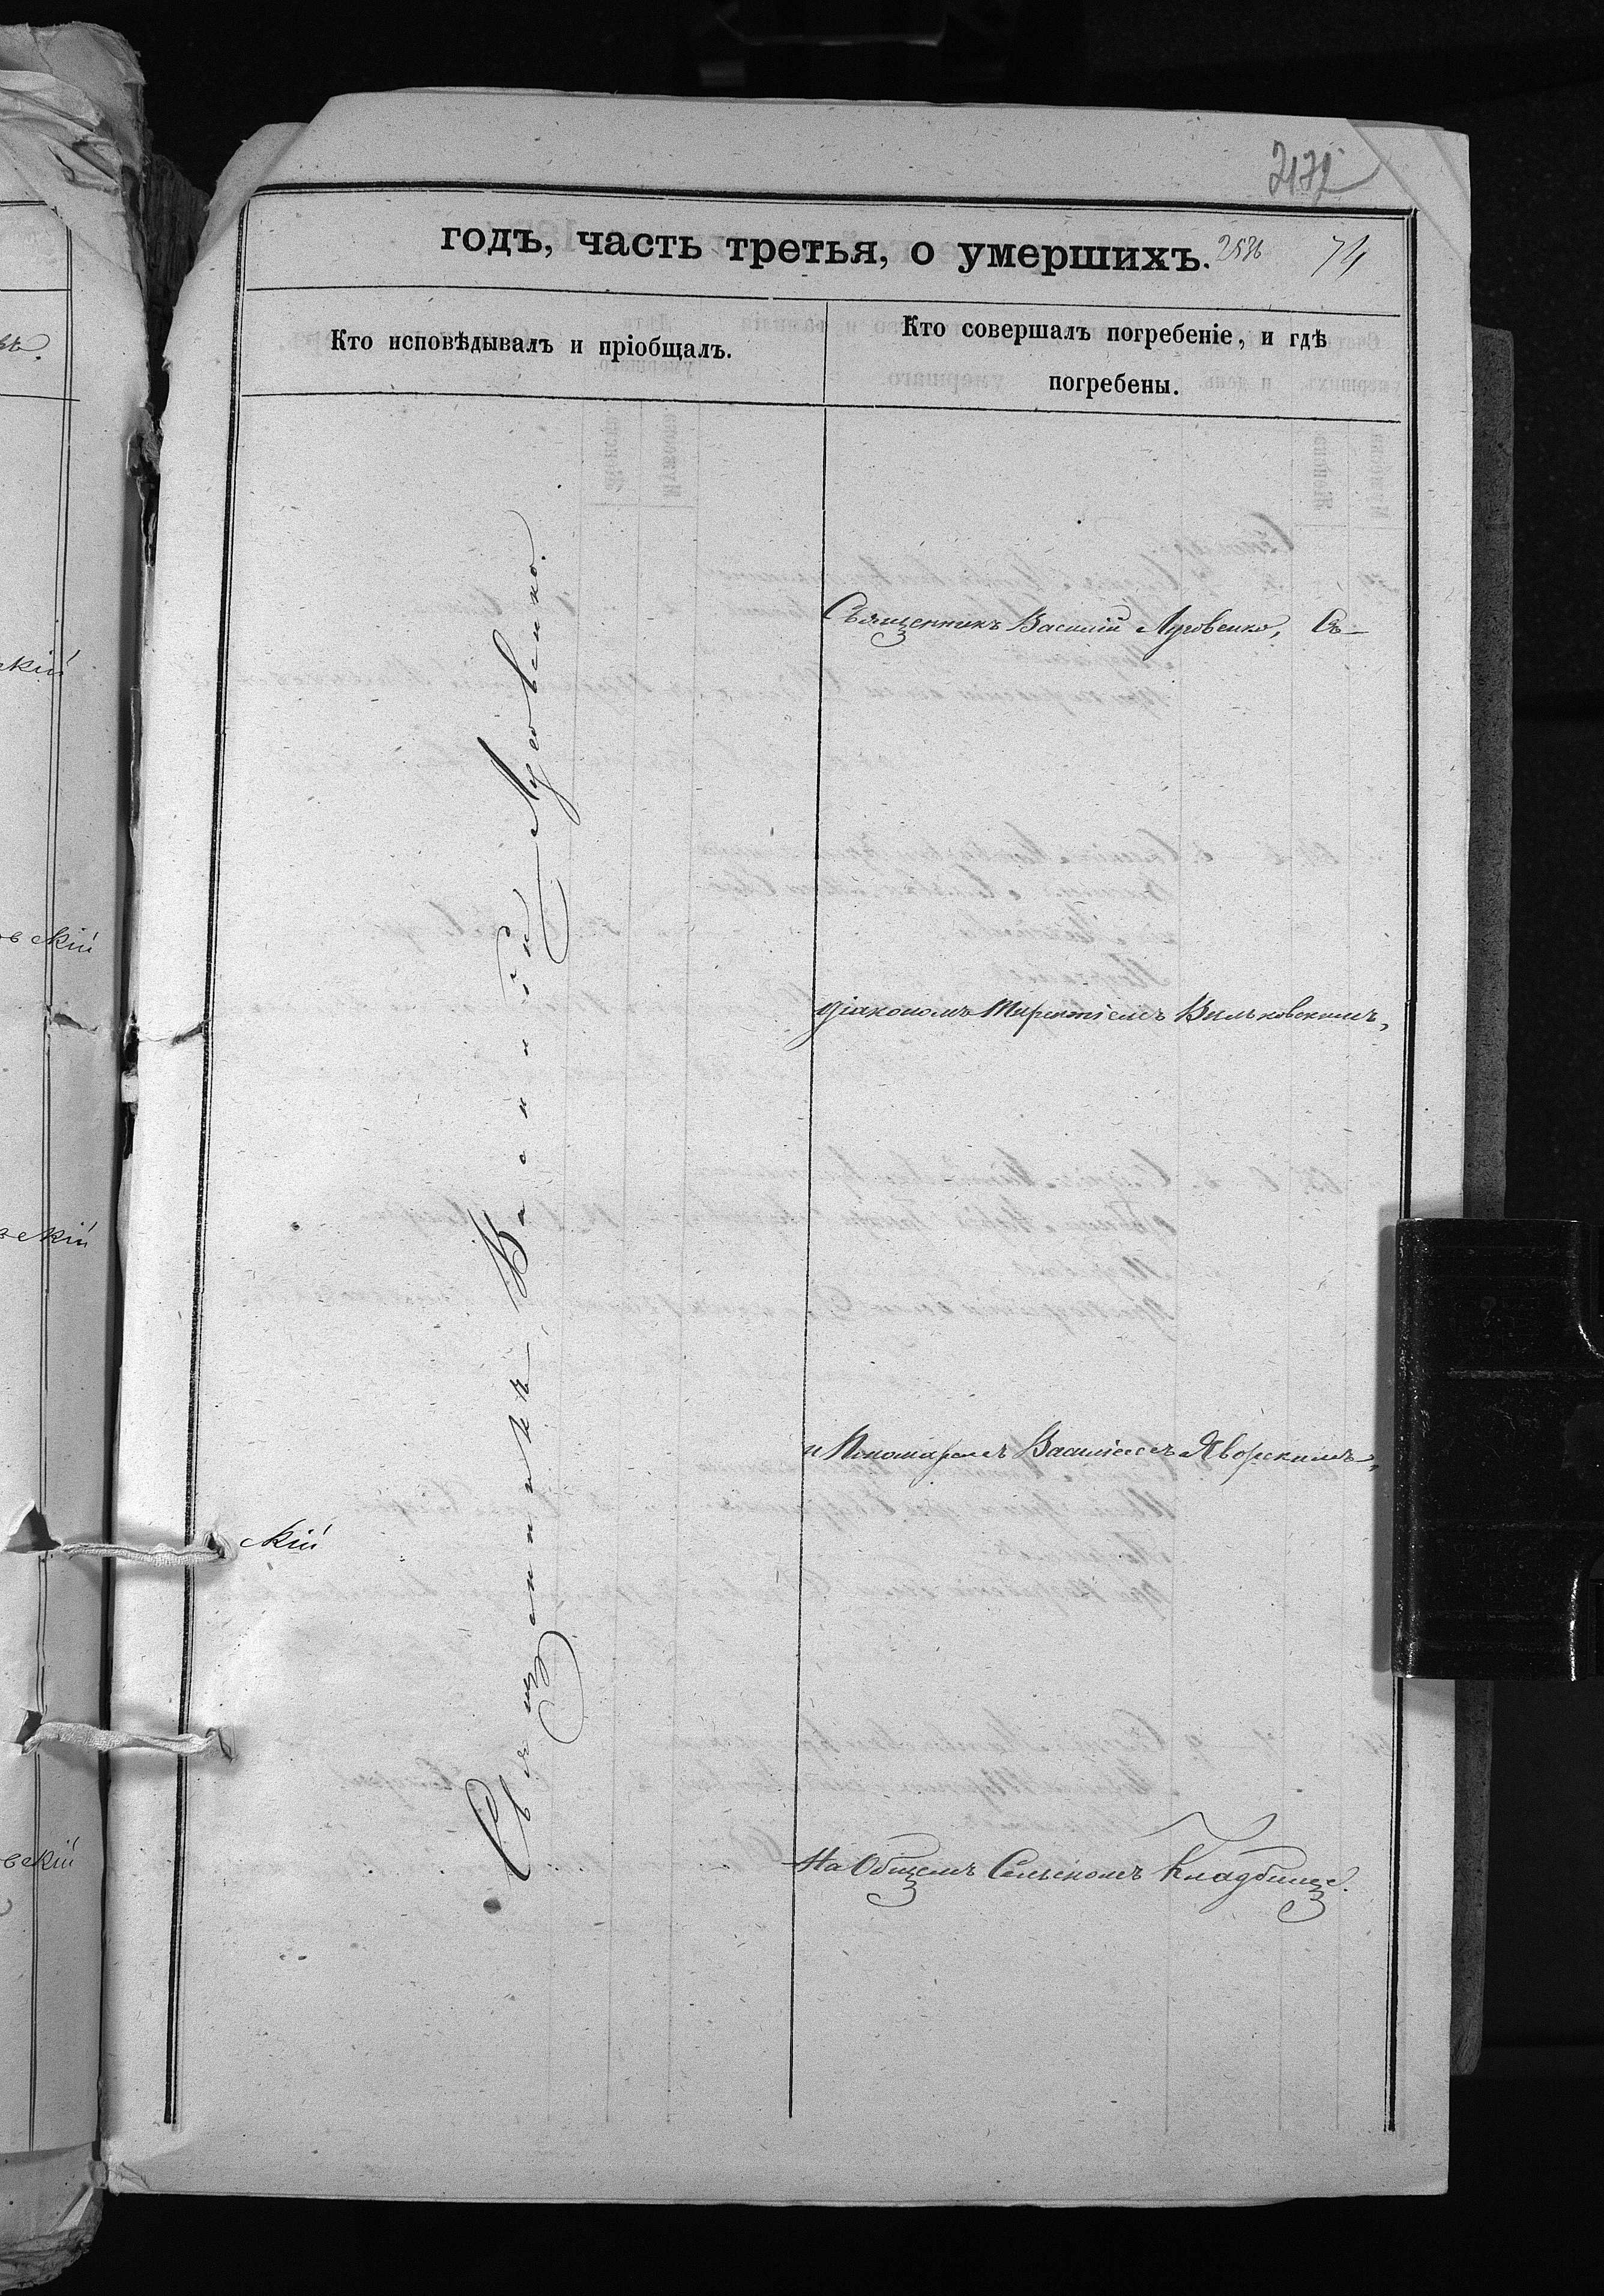 2172
годъ, часть третья, о умершихъ. 2586 74
Кто исповѣдывалъ и пріобщалъ.
Кто совершалъ погребеніе, и гдѣ
погребены.
Священникъ Василій Луговенко.
Священникъ Василій Луговенко, Съ
діакономъ Вильковскимъ,
и Пономаремъ Василіемъ Яворскимъ,
На Общемъ Сельскомъ Кладбищѣ.
скій
вскій
вскій
скій
вскій